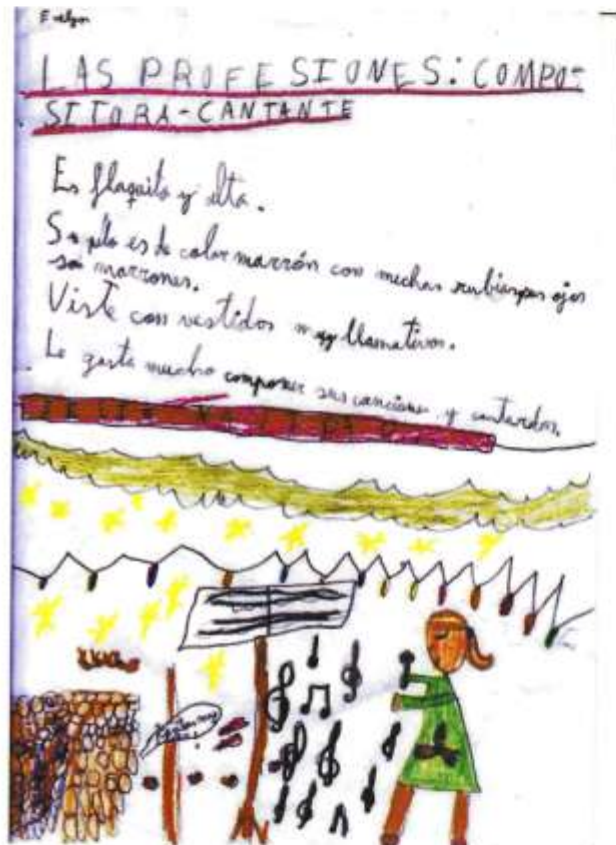 Evelyn
LAS PROFESIONES: COMPO-
SITORA-CANTANTE
Es flaquita y alta.
Su pelo es de color marrón con mechas rubias y sus ojos
son marrones.
Viste con vestidos muy llamativos.
Le gusta mucho componer sus canciones y cantarlas.